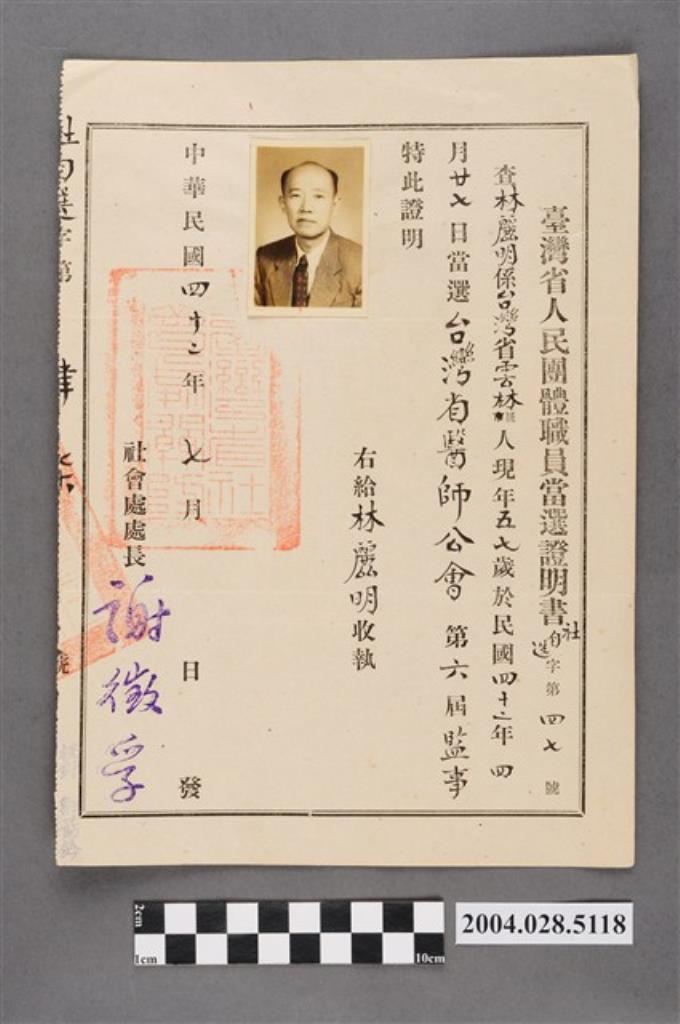 臺灣省人民團體職員當選證明書 社內選字第四七號
查林麗明係台灣省雲林縣人現年五七歲於民國四十二年四
月廿七日當選台灣省醫師公會第六屆監事
特此證明
右給林麗明收執
中華民國四十二年七月日發
社會處處長 謝徵孚
社內選字第
號
2cm
1cm
10cm
2004.028.5118